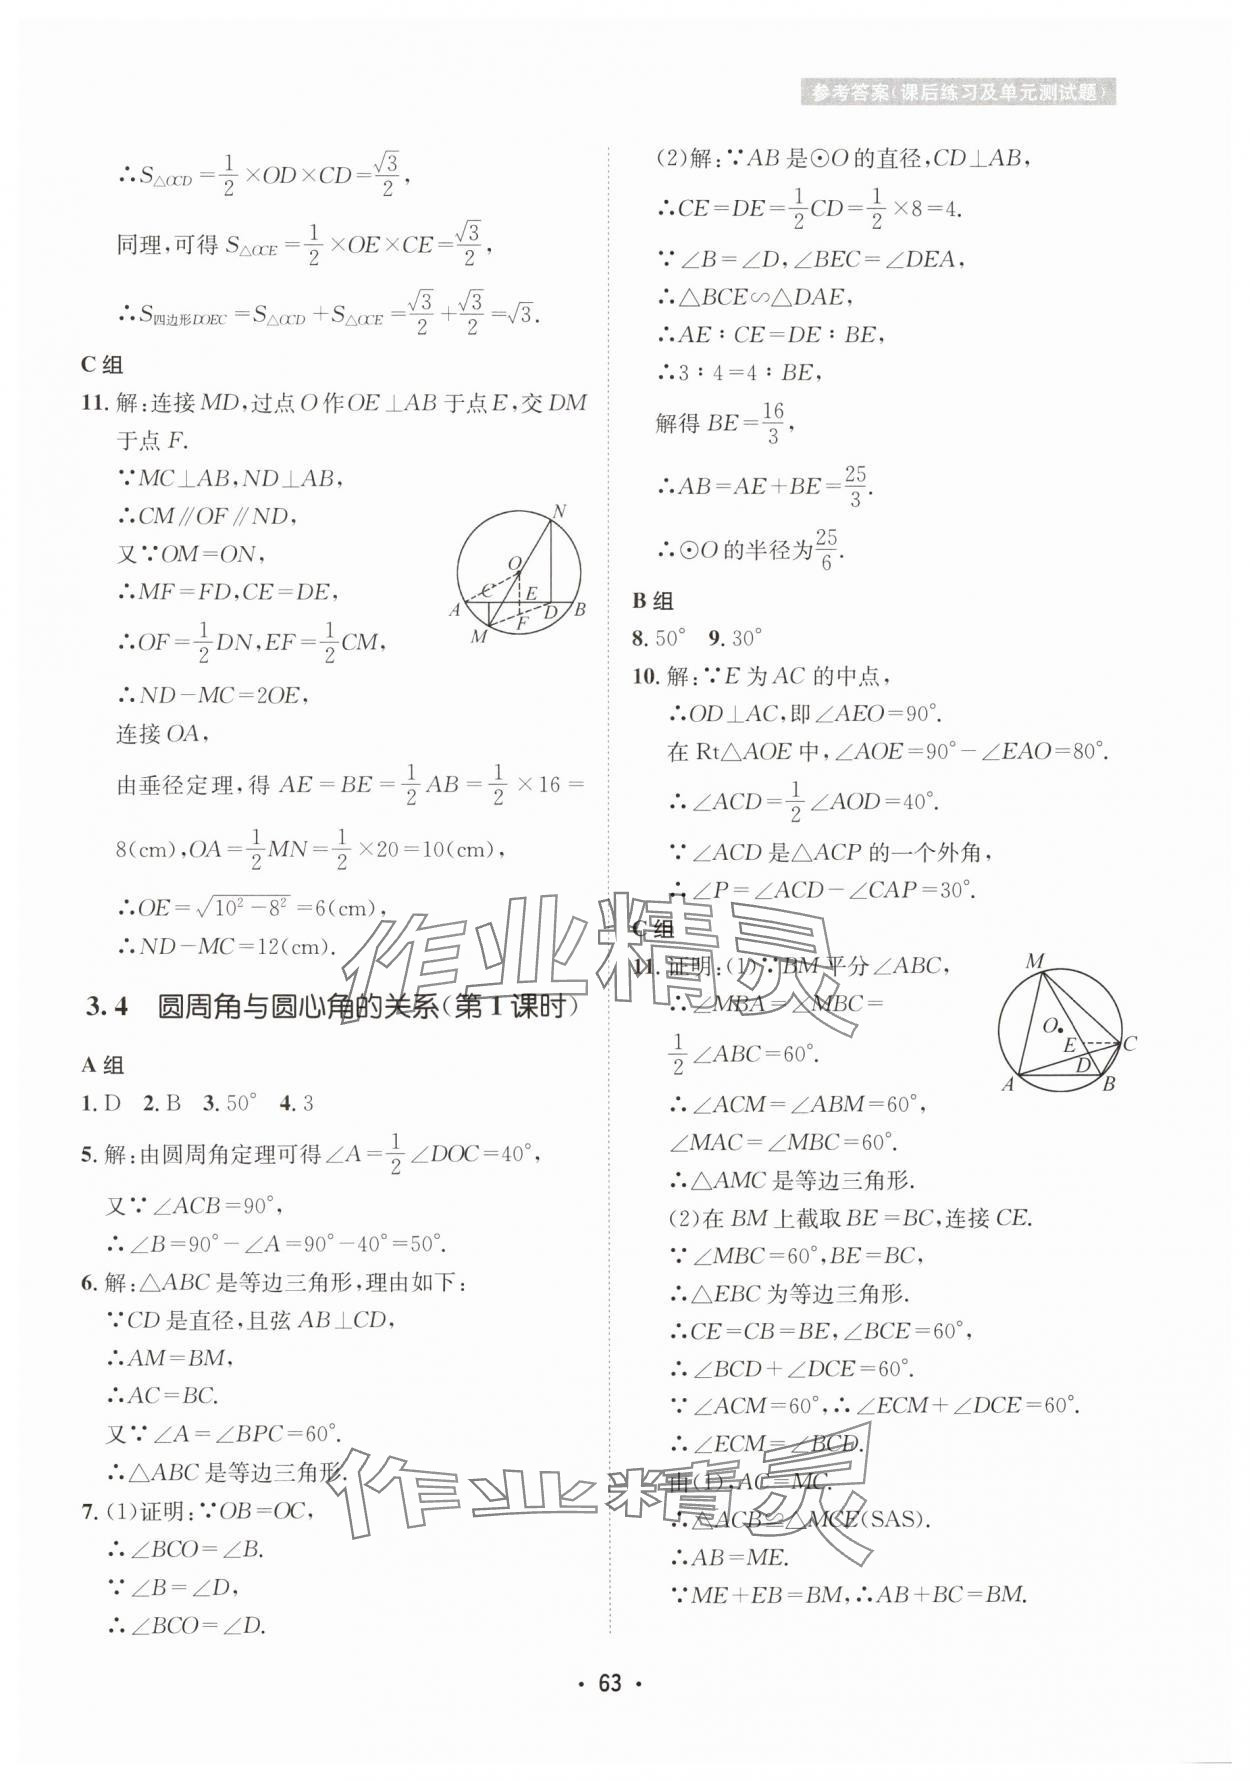 参考答案(课后练习及单元测试题)
∴S△OCD=1/2×OD×CD=√3/2,
同理,可得S△OCE=1/2×OE×CE=√3/2,
∴S四边形DOEC=S△OCD+S△OCE=√3/2+√3/2=√3.
C组
11.解:连接MD,过点O作OE⊥AB于点E,交DM
于点F.
∵MC⊥AB,ND⊥AB,
∴CM∥OF∥ND,
又∵OM=ON,
∴MF=FD,CE=DE,
∴OF=1/2DN,EF=1/2CM,
∴ND-MC=2OE,
连接OA,
由垂径定理,得AE=BE=1/2AB=1/2×16=
8(cm),OA=1/2MN=1/2×20=10(cm),
∴OE=√(10²-8²)=6(cm),
∴ND-MC=12(cm).
N
O
C
E
A
D
B
F
M
3.4 圆周角与圆心角的关系(第1课时)
A组
1.D 2.B 3.50° 4.3
5.解:由圆周角定理可得∠A=1/2∠DOC=40°,
又∵∠ACB=90°,
∴∠B=90°-∠A=90°-40°=50°.
6.解:△ABC是等边三角形,理由如下:
∵CD是直径,且弦AB⊥CD,
∴AM=BM,
∴AC=BC.
又∵∠A=∠BPC=60°.
∴△ABC是等边三角形.
7.(1)证明:∵OB=OC,
∴∠BCO=∠B.
∵∠B=∠D,
∴∠BCO=∠D.
(2)解:∵AB是⊙O的直径,CD⊥AB,
∴CE=DE=1/2CD=1/2×8=4.
∵∠B=∠D,∠BEC=∠DEA,
∴△BCE∽△DAE,
∴AE∶CE=DE∶BE,
∴3∶4=4∶BE,
解得BE=16/3,
∴AB=AE+BE=25/3.
∴⊙O的半径为25/6.
B组
8.50° 9.30°
10.解:∵E为AC的中点,
∴OD⊥AC,即∠AEO=90°.
在Rt△AOE中,∠AOE=90°-∠EAO=80°.
∴∠ACD=1/2∠AOD=40°.
∵∠ACD是△ACP的一个外角,
∴∠P=∠ACD-∠CAP=30°.
C组
11.证明:(1)∵BM平分∠ABC,
∴∠MBA=∠MBC=
1/2∠ABC=60°.
∴∠ACM=∠ABM=60°,
∠MAC=∠MBC=60°.
∴△AMC是等边三角形.
M
O
E
C
D
A
B
(2)在BM上截取BE=BC,连接CE.
∵∠MBC=60°,BE=BC,
∴△EBC为等边三角形.
∴CE=CB=BE,∠BCE=60°,
∴∠BCD+∠DCE=60°.
∵∠ACM=60°,∴∠ECM+∠DCE=60°.
∴∠ECM=∠BCD.
由(1),AC=MC.
∴△ACB≌△MCE(SAS).
∴AB=ME.
∵ME+EB=BM,∴AB+BC=BM.
作业精灵
作业精灵
·63·